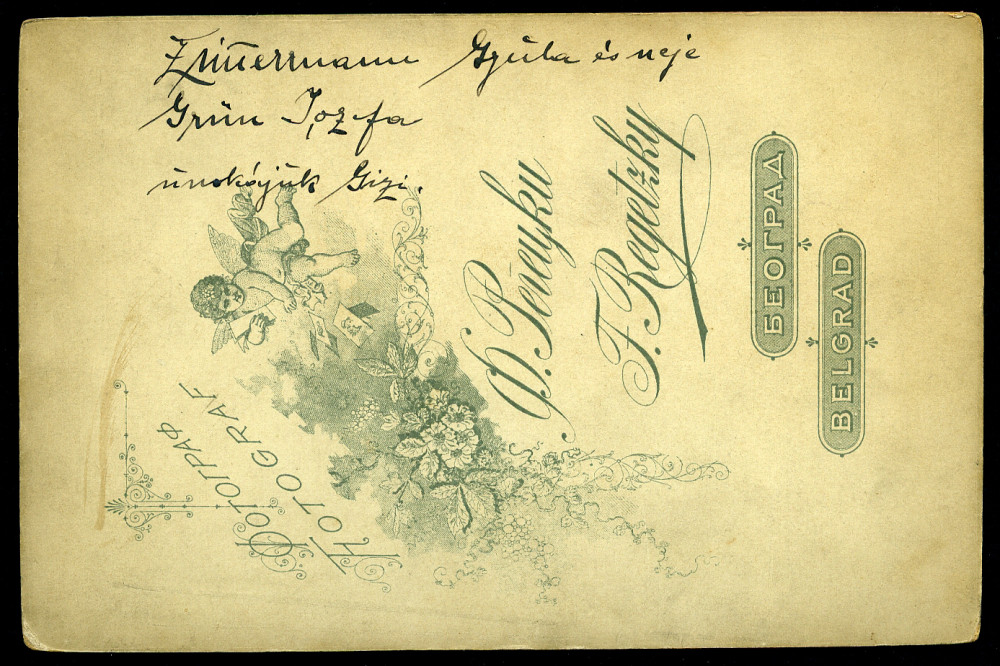 Zim̄ermann Gyula és neje
Grün Jozefa
unokájuk Gizi.
ФОТОГРАФ
FOTOGRAF
Ф. Регецки
F. Regetzky
БЕОГРАД
BELGRAD